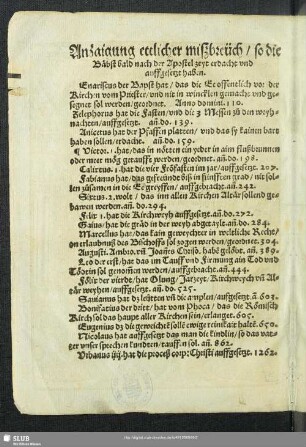 Anzaigung etlicher mißbreüch / so die
Bäbst bald nach der Apostel zeyt erdacht vnd
auffgesetzt haben.
Enaristus der Bapst hat / das die Ee offentlich vor der
Kirchen vom Priester / vnd nit in wincklen gemacht vnd ge-
segnet sol werden / geordnet. Anno domini. 110.
Telephorus hat die Fasten / vnd die 3 Messen zů den weyh-
nachten / auffgesetzt. an do. 139.
Anicetus hat der Pfaffen platten / vnd das sy kainen bart
haben sollen / erdacht. an do. 159.
Victor. 1. hat / das in nöten ein yeder in aim flußbrunnen
oder meer mög getaufft werden / geordnet. an do. 198.
Calixtus. 1. hat die vier Fronfasten im jar / auffgesetzt. an do. 217.
Fabianus hat / das gesründe biß in fünfften grad / nit sol-
len zůsamen in die Ee greyffen / auffgebracht. an. 242.
Sixtus. 2. wolt / das inn allen Kirchen Altär sollend ge-
bawen werden. an do. 294.
Felix 1. hat die Kirchweyh auffgesetzt. an do. 272.
Gaius / hat die gräd in der weyh abgetaylt. an do. 284.
Marcellus hat / das kain geweychter in weltliche Recht /
on erlaubnuß des Bischoffs sol zogen werden / geordnet. 304
Augusti. Ambro. vnd Joañes Casso. habē gelebt. añ. 389.
Leo der erst / hat das im Tauff vnd Firmung ain Tod vnd
Tötin sol genommen werden / auffgebracht. añ. 444.
Felix der vierde / hat Ölung / Jarzeyt / Kirchweych vñ Al-
tär weyhen / auffgesetzt. añ. do. 525.
Sauianus hat dz lebten vñ die amplen / auffgesetzt. añ 603.
Bonifatius der dritt / hat vom Phoca / das die Römisch
Kirch sol das haupt aller Kirchen sein / erlanget. 605.
Eugenius dz die geweichtē solle ewige reinikait haltē. 650.
Nicolaus hat auffgesetzt das man die kindlin / so das vat-
ter vnser sprechen kündten / tauffen sol. añ 862.
Vrbanus iiij. hat die proceß corp: Christi auffgesetzt. 1262.
SLUB
Wir führen Wissen.